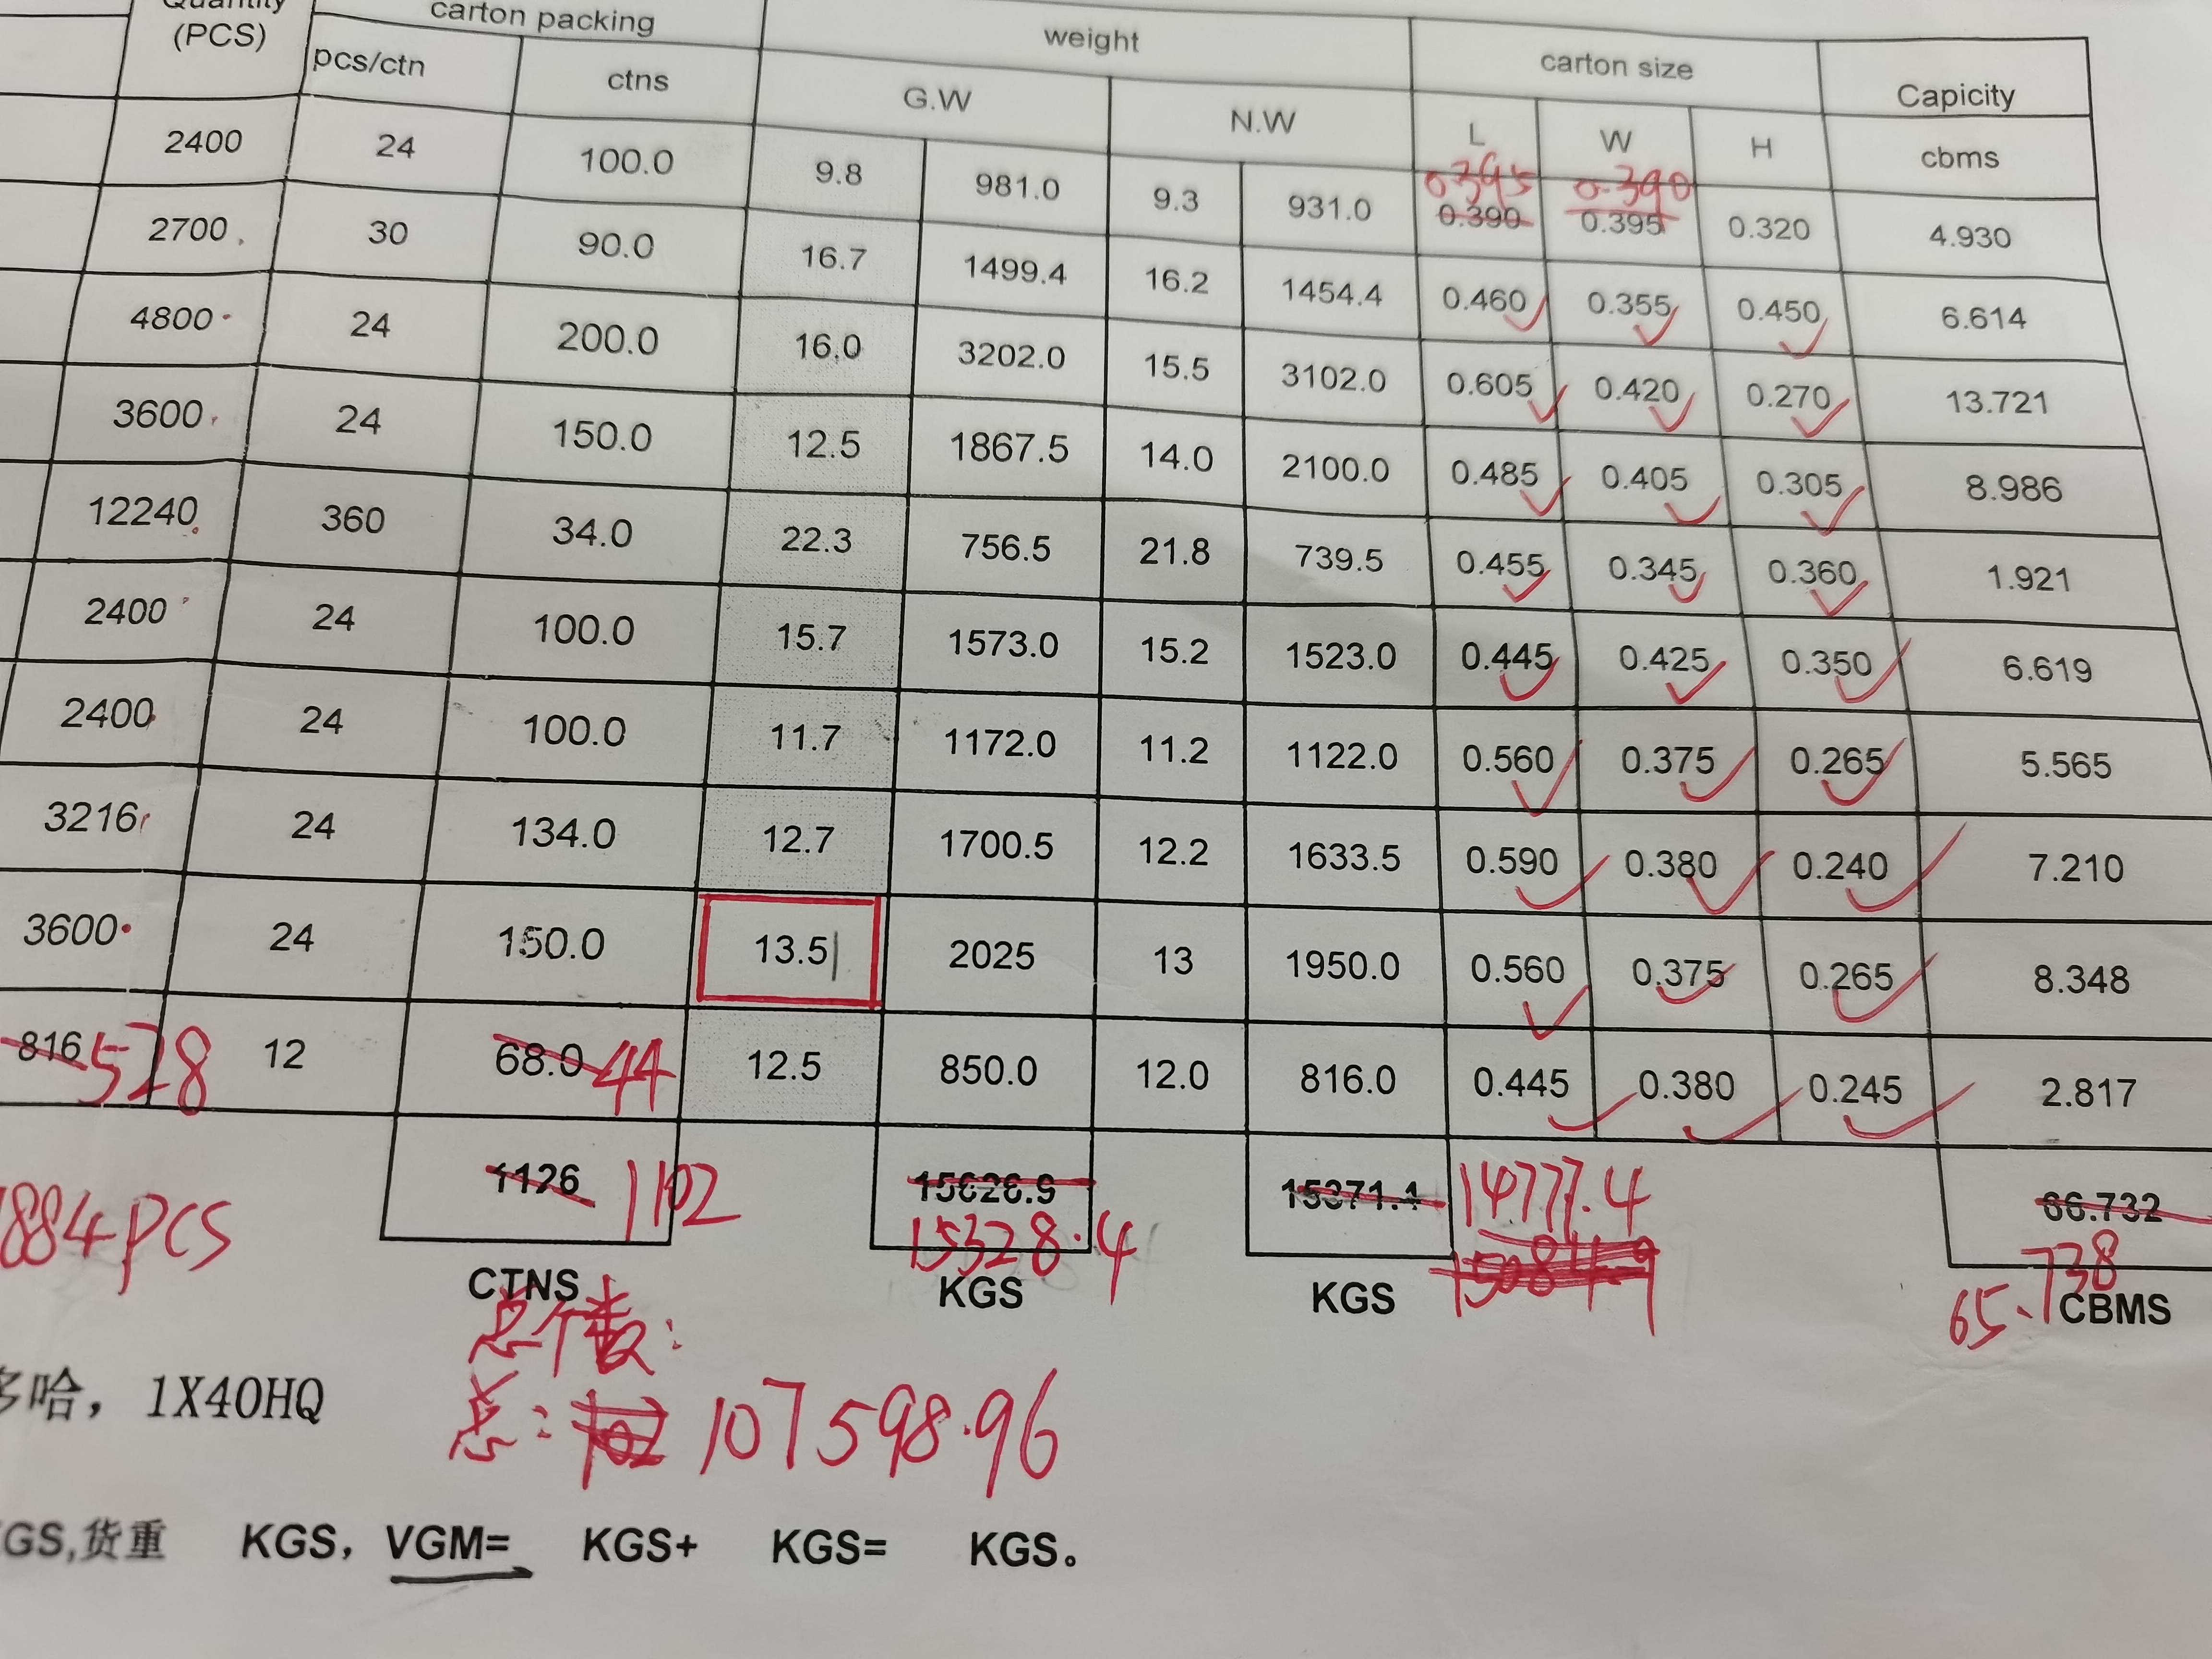 Quantity carton packing weight carton size Capicity
(PCS) pcs/ctn ctns G.W N.W L W H cbms
0.395 0.390
2400 24 100.0 9.8 981.0 9.3 931.0 0.390 0.395 0.320 4.930
2700 30 90.0 16.7 1499.4 16.2 1454.4 0.460 0.355 0.450 6.614
4800 24 200.0 16.0 3202.0 15.5 3102.0 0.605 0.420 0.270 13.721
3600 24 150.0 12.5 1867.5 14.0 2100.0 0.485 0.405 0.305 8.986
12240 360 34.0 22.3 756.5 21.8 739.5 0.455 0.345 0.360 1.921
2400 24 100.0 15.7 1573.0 15.2 1523.0 0.445 0.425 0.350 6.619
2400 24 100.0 11.7 1172.0 11.2 1122.0 0.560 0.375 0.265 5.565
3216 24 134.0 12.7 1700.5 12.2 1633.5 0.590 0.380 0.240 7.210
3600 24 150.0 13.5 2025 13 1950.0 0.560 0.375 0.265 8.348
816 528 12 68.0 44 12.5 850.0 12.0 816.0 0.445 0.380 0.245 2.817
1126 1102 15371.4 14777.4 66.732
884PCS 15328.4 65.738
CTNS KGS KGS CBMS
总个数:
哈，1X40HQ
总: 107598.96
GS,货重 KGS，VGM= KGS+ KGS= KGS。